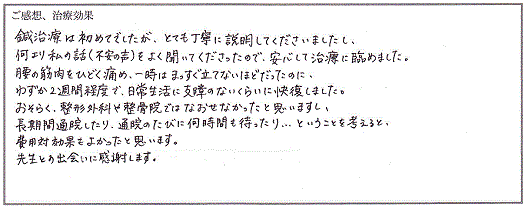 ご感想、治療効果
鍼治療は初めてでしたが、とても丁寧に説明してくださいましたし、
何より私の話(不安の声)をよく聞いてくださったので、安心して治療に臨めました。
腰の筋肉をひどく痛め、一時はまっすぐ立てないほどだったのに、
わずか2週間程度で、日常生活に支障のないくらいに快復しました。
おそらく、整形外科や整骨院ではなおせなかったと思いますし、
長期間通院したり、通院のたびに何時間も待ったり…ということを考えると、
費用対効果もよかったと思います。
先生との出会いに感謝します。